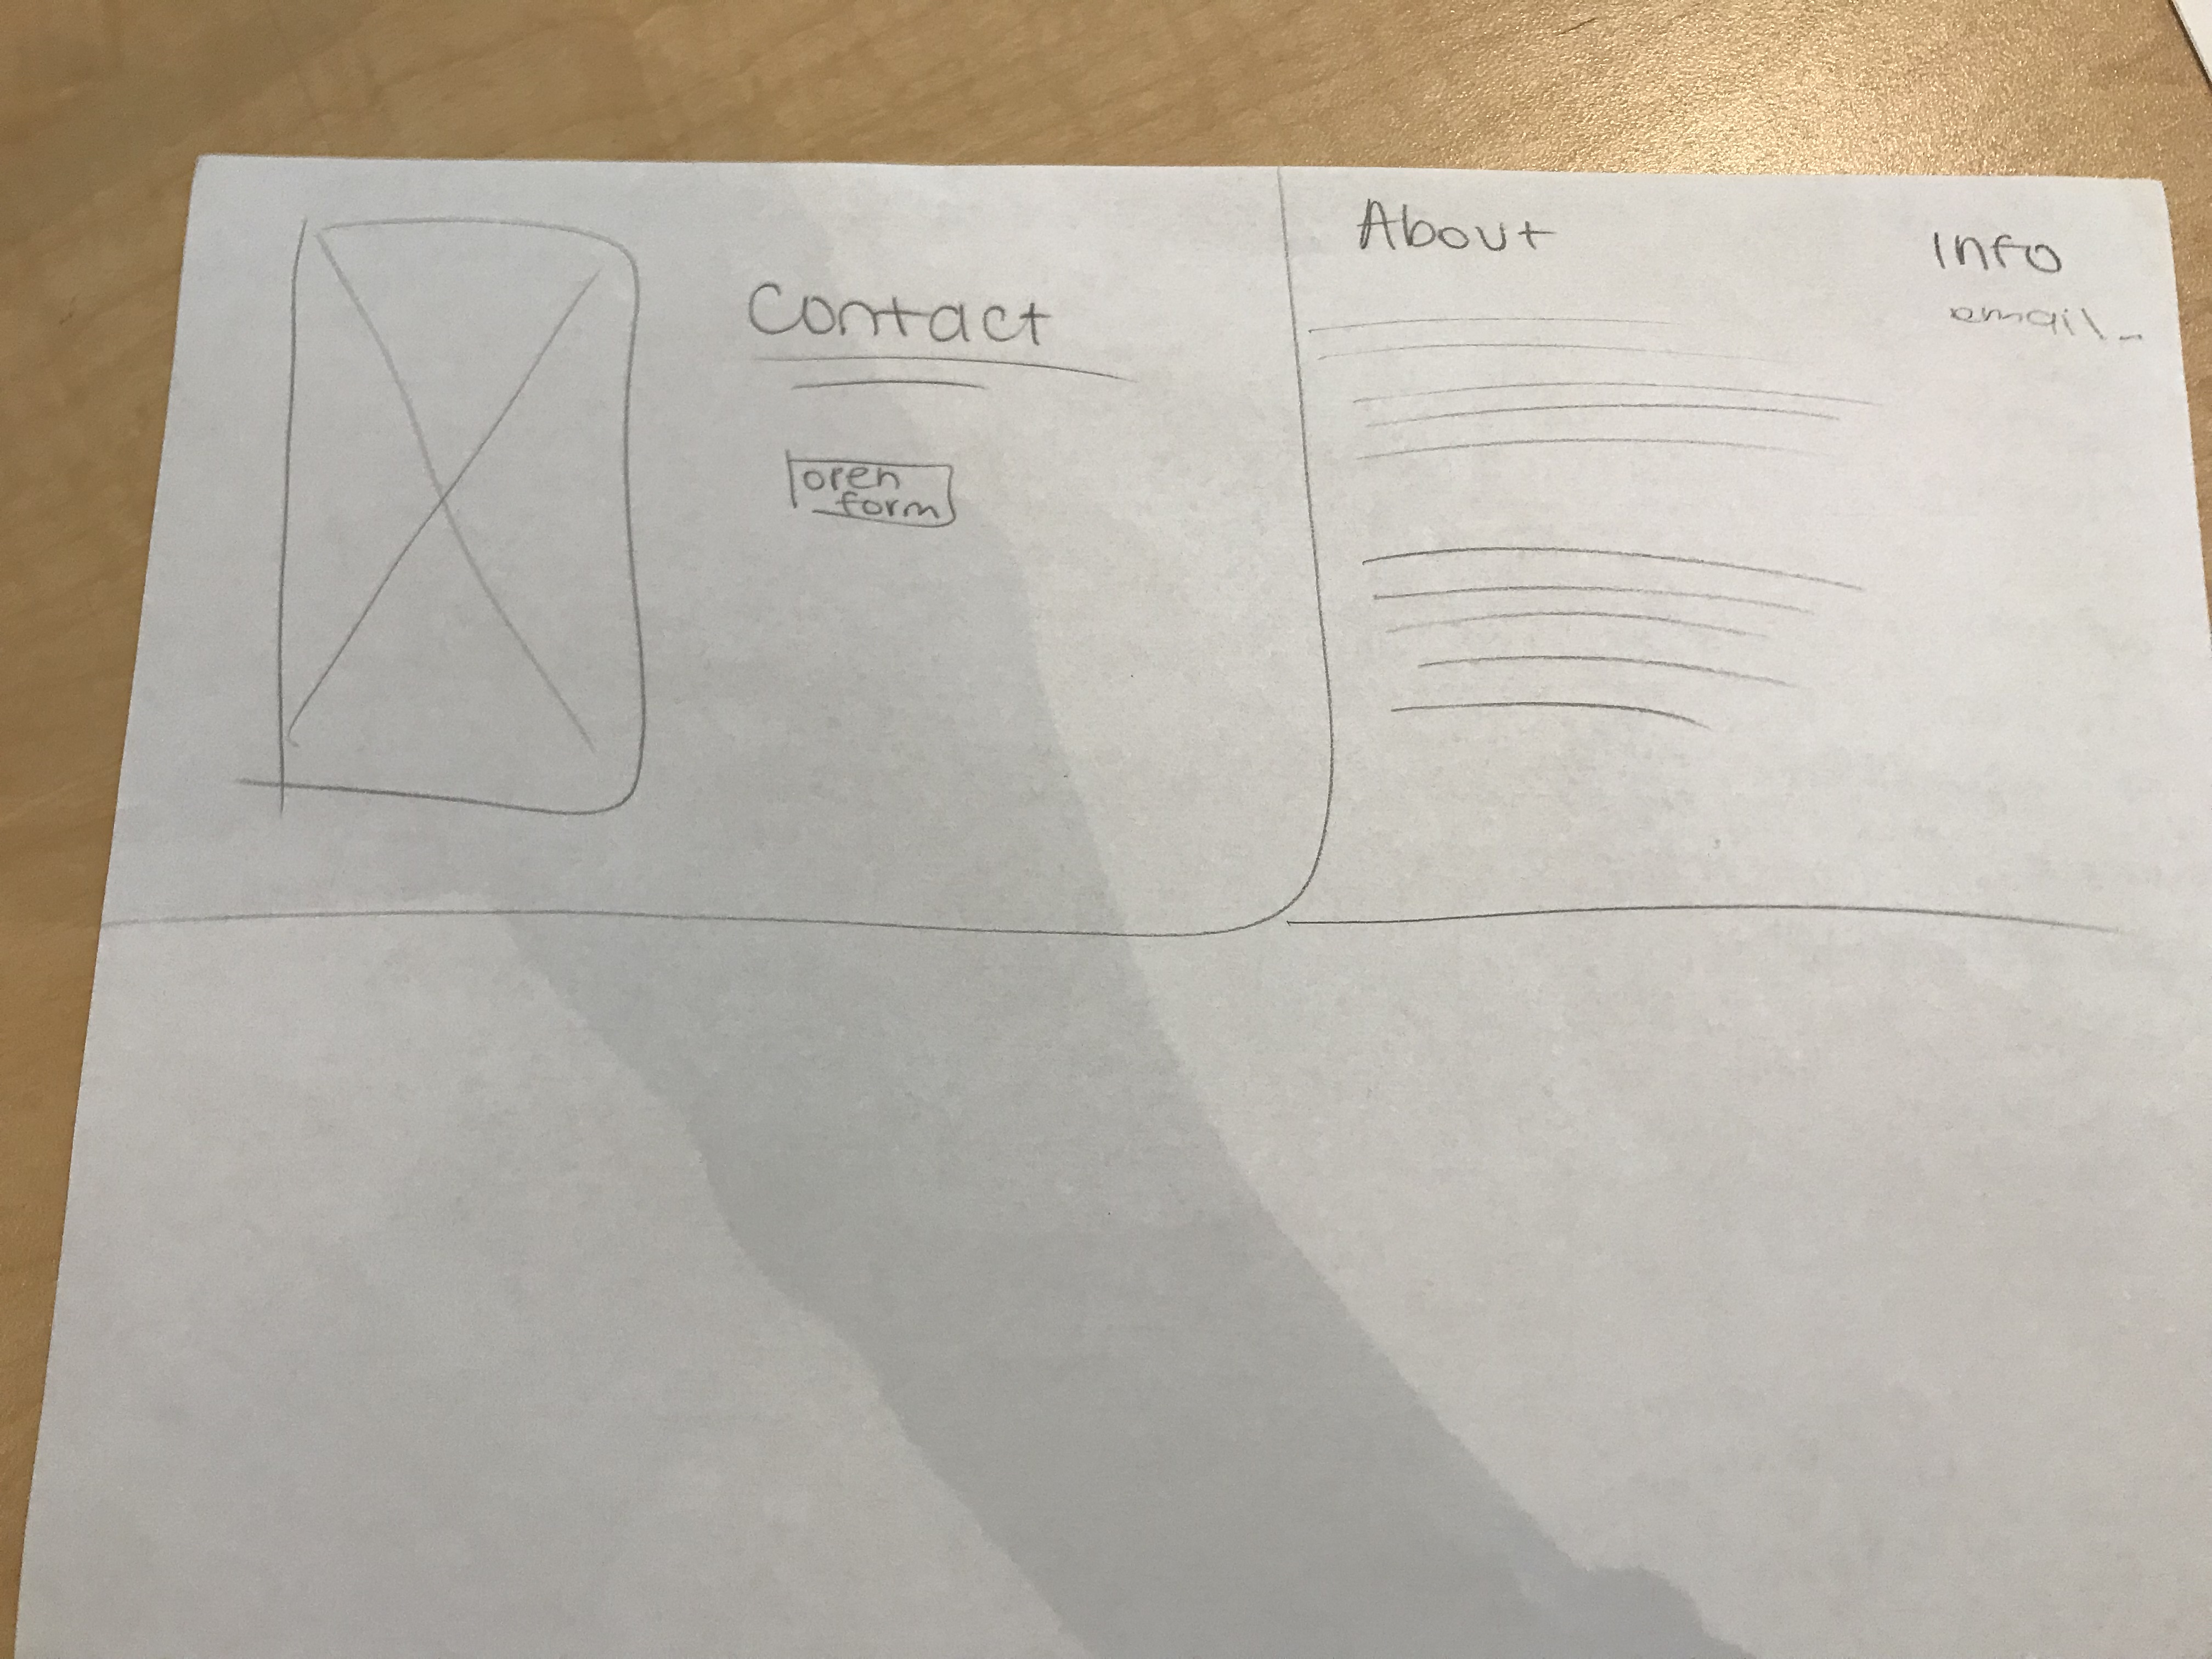 Contact
open
form
About
Info
email